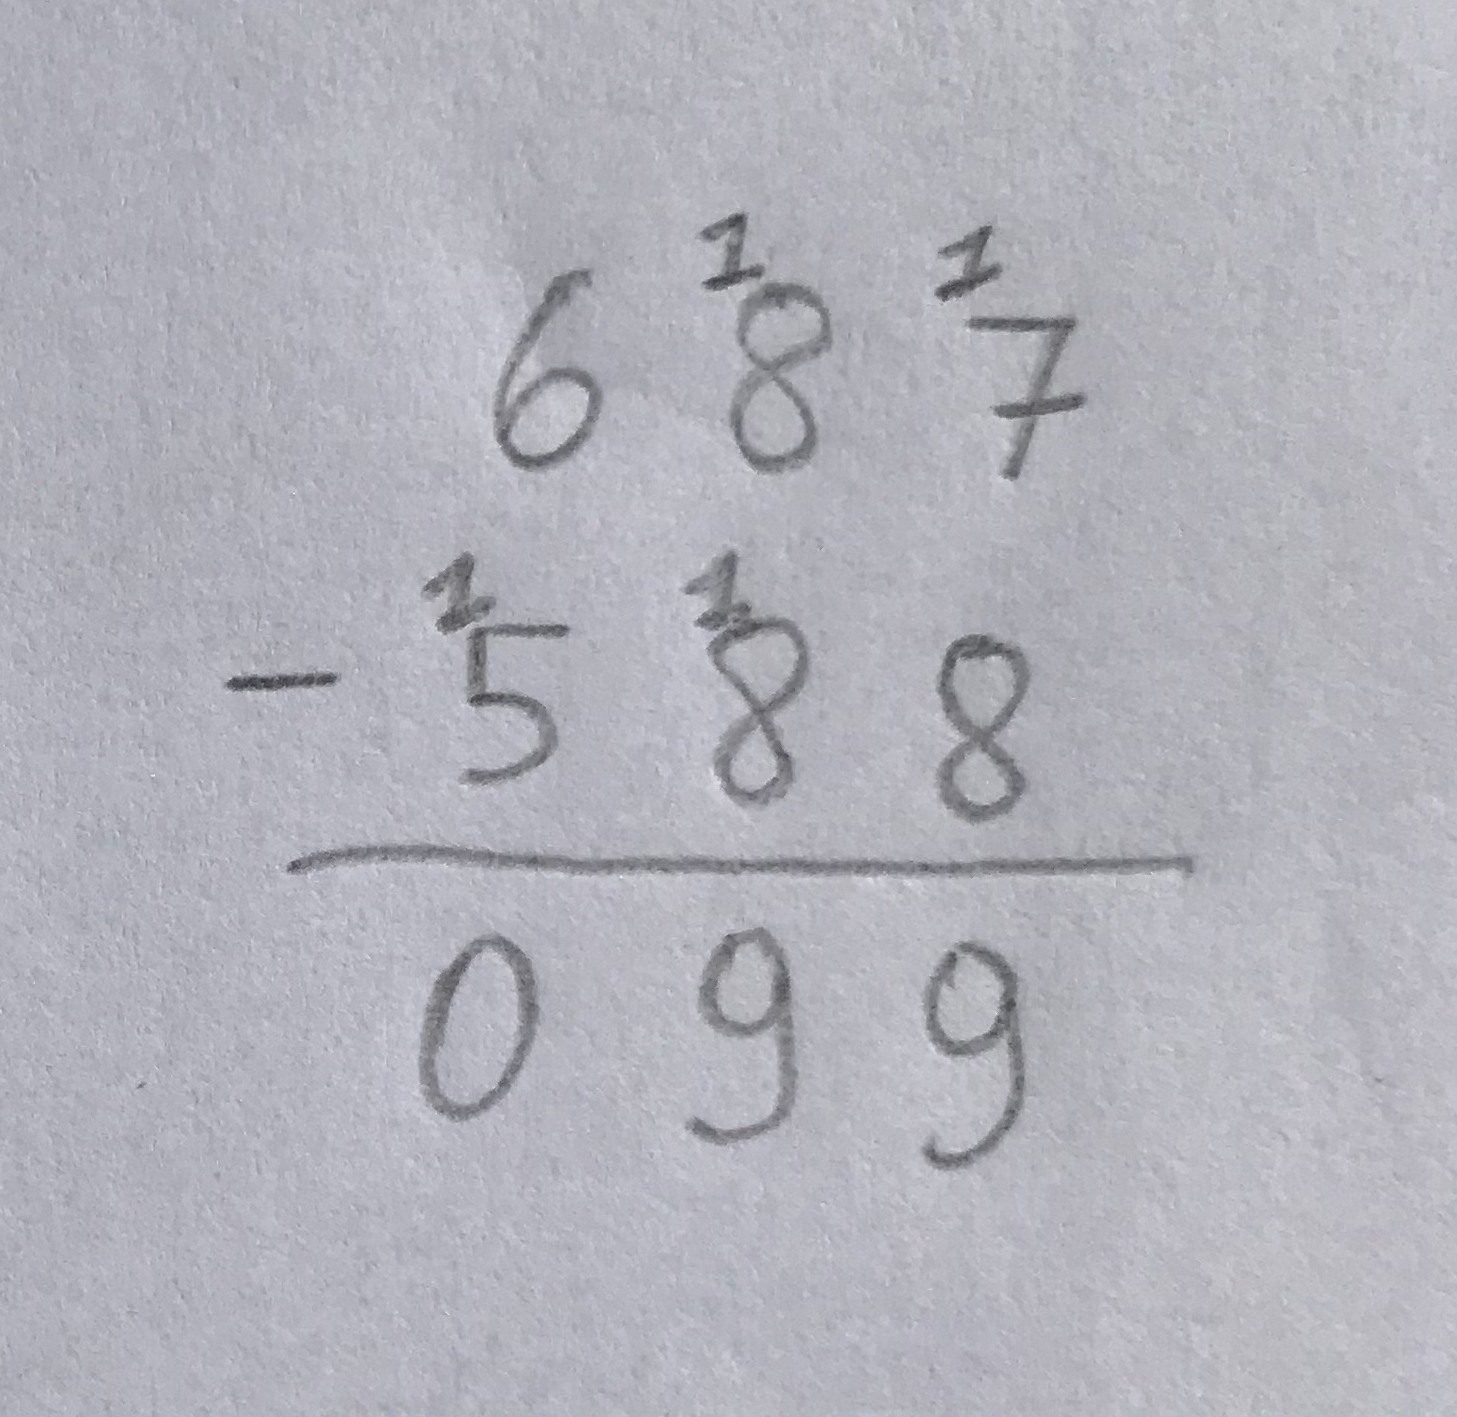 6 ¹8 ¹7
- ¹5 ¹8 8
0 9 9